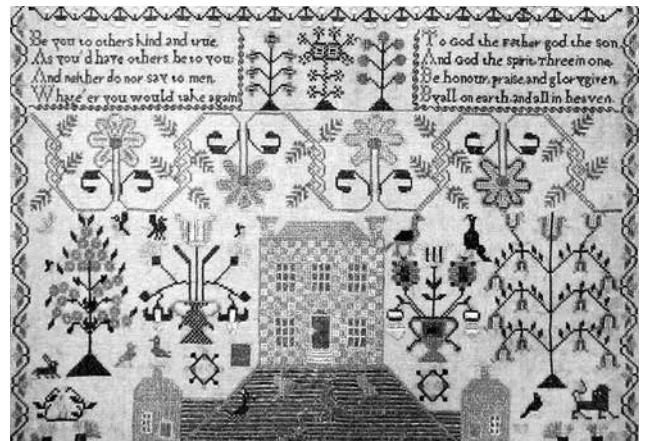 Be you to others kind and true,
As you'd have others be to you:
And neither do nor say to men,
Whate'er you would take again
To God the Father god the son,
And God the spirit Three in one,
Be honour, praise, and glory given,
By all on earth, and all in heaven.